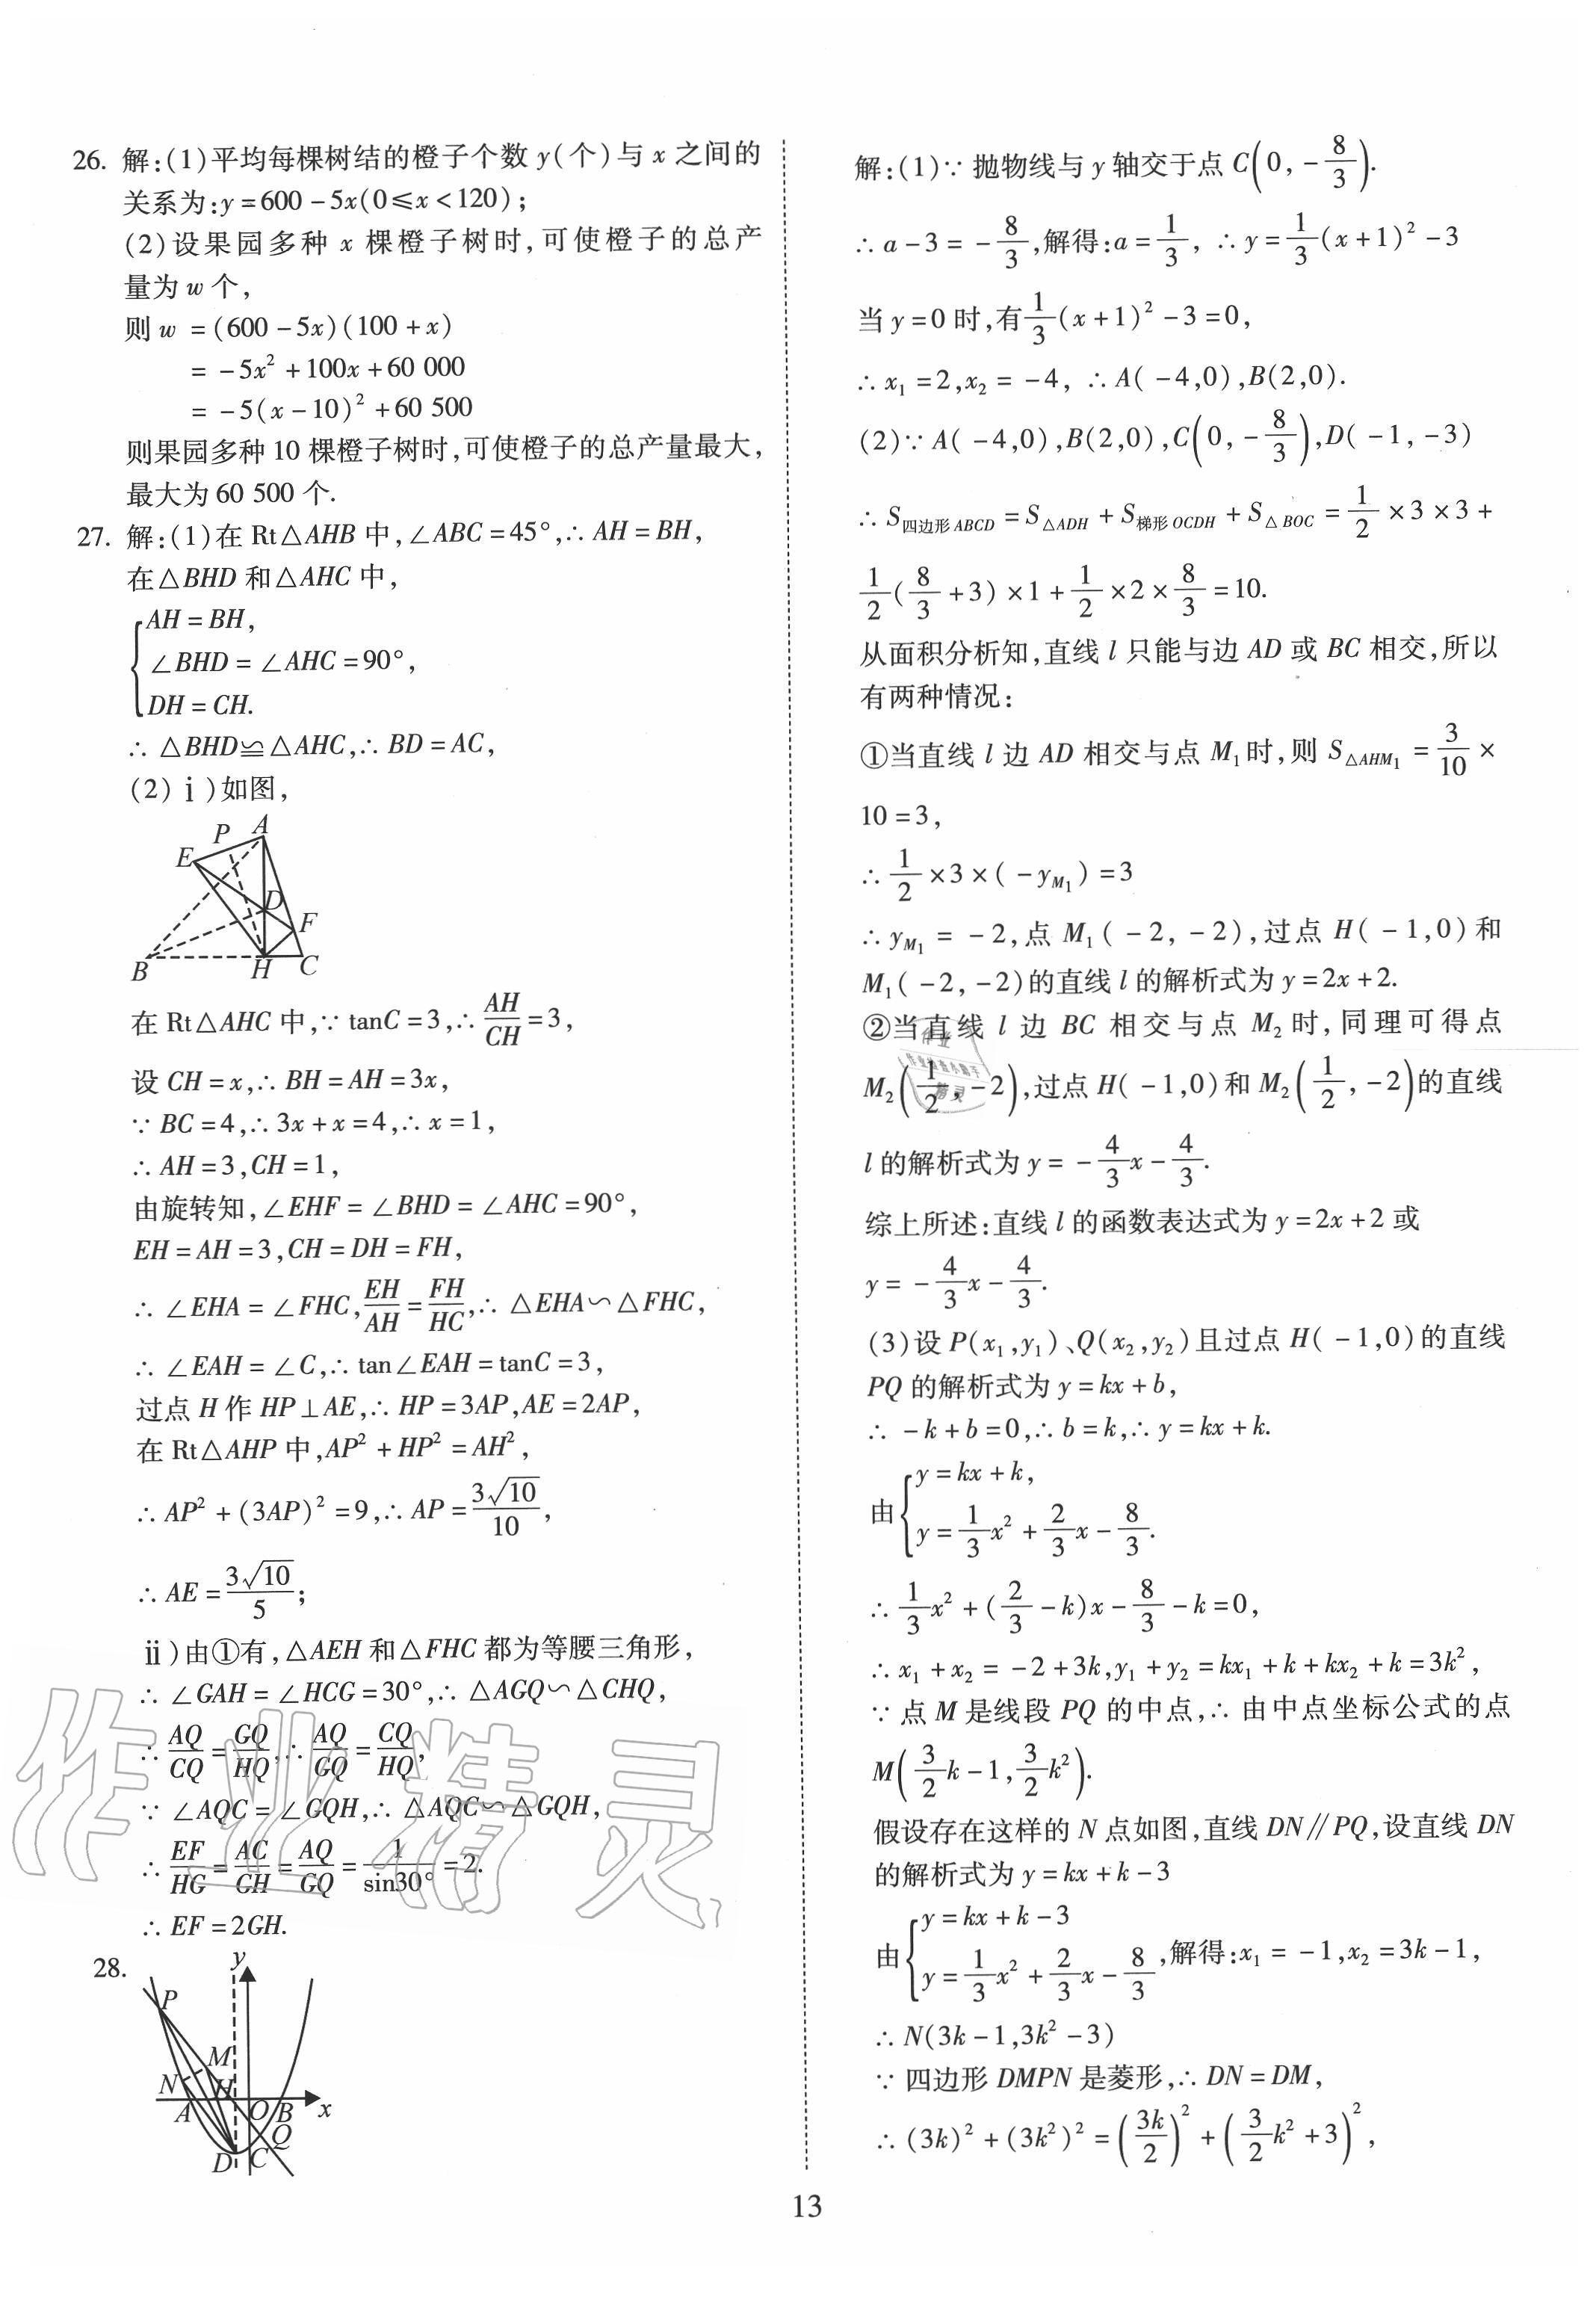 26. 解:(1)平均每棵树结的橙子个数 y(个)与 x 之间的
关系为:y=600-5x(0≤x<120);
(2)设果园多种 x 棵橙子树时,可使橙子的总产
量为 w 个,
则 w =(600-5x)(100+x)
= -5x²+100x+60 000
= -5(x-10)²+60 500
则果园多种 10 棵橙子树时,可使橙子的总产量最大,
最大为 60 500 个.
27. 解:(1)在 Rt△AHB 中,∠ABC=45°,∴ AH=BH,
在△BHD 和△AHC 中,
{AH=BH,
∠BHD=∠AHC=90°,
DH=CH.
∴ △BHD≌△AHC,∴ BD=AC,
(2) ⅰ)如图,
P A
E
D
F
B H C
在 Rt△AHC 中,∵ tanC=3,∴ AH/CH=3,
设 CH=x,∴ BH=AH=3x,
∵ BC=4,∴ 3x+x=4,∴ x=1,
∴ AH=3,CH=1,
由旋转知,∠EHF=∠BHD=∠AHC=90°,
EH=AH=3,CH=DH=FH,
∴ ∠EHA=∠FHC,EH/AH=FH/HC,∴ △EHA∽△FHC,
∴ ∠EAH=∠C,∴ tan∠EAH=tanC=3,
过点 H 作 HP⊥AE,∴ HP=3AP,AE=2AP,
在 Rt△AHP 中,AP²+HP²=AH²,
∴ AP²+(3AP)²=9,∴ AP=3√10/10,
∴ AE=3√10/5;
ⅱ)由①有,△AEH 和△FHC 都为等腰三角形,
∴ ∠GAH=∠HCG=30°,∴ △AGQ∽△CHQ,
∴ AQ/CQ=GQ/HQ,∴ AQ/GQ=CQ/HQ,
∵ ∠AQC=∠GQH,∴ △AQC∽△GQH,
∴ EF/HG=AC/GH=AQ/GQ=1/sin30°=2.
∴ EF=2GH.
28.
y
P
M
N H
A O B x
Q
D C
解:(1)∵ 抛物线与 y 轴交于点 C(0,-8/3).
∴ a-3=-8/3,解得:a=1/3, ∴ y=1/3(x+1)²-3
当 y=0 时,有1/3(x+1)²-3=0,
∴ x₁=2,x₂=-4, ∴ A(-4,0),B(2,0).
(2)∵ A(-4,0),B(2,0),C(0,-8/3),D(-1,-3)
∴ S四边形ABCD=S△ADH+S梯形OCDH+S△BOC=1/2×3×3+
1/2(8/3+3)×1+1/2×2×8/3=10.
从面积分析知,直线 l 只能与边 AD 或 BC 相交,所以
有两种情况:
①当直线 l 边 AD 相交与点 M₁时,则 S△AHM₁=3/10×
10=3,
∴ 1/2×3×(-yM₁)=3
∴ yM₁=-2,点 M₁(-2,-2),过点 H(-1,0)和
M₁(-2,-2)的直线 l 的解析式为 y=2x+2.
②当直线 l 边 BC 相交与点 M₂ 时,同理可得点
M₂(1/2,-2),过点 H(-1,0)和 M₂(1/2,-2)的直线
l 的解析式为 y=-4/3x-4/3.
综上所述:直线 l 的函数表达式为 y=2x+2 或
y=-4/3x-4/3.
(3)设 P(x₁,y₁)、Q(x₂,y₂)且过点 H(-1,0)的直线
PQ 的解析式为 y=kx+b,
∴ -k+b=0,∴ b=k,∴ y=kx+k.
由{y=kx+k,
y=1/3x²+2/3x-8/3.
∴ 1/3x²+(2/3-k)x-8/3-k=0,
∴ x₁+x₂=-2+3k,y₁+y₂=kx₁+k+kx₂+k=3k²,
∵ 点 M 是线段 PQ 的中点,∴ 由中点坐标公式的点
M(3/2k-1,3/2k²).
假设存在这样的 N 点如图,直线 DN∥PQ,设直线 DN
的解析式为 y=kx+k-3
由{y=kx+k-3
y=1/3x²+2/3x-8/3,解得:x₁=-1,x₂=3k-1,
∴ N(3k-1,3k²-3)
∵ 四边形 DMPN 是菱形,∴ DN=DM,
∴ (3k)²+(3k²)²=(3k/2)²+(3/2k²+3)²,
13
作业精灵